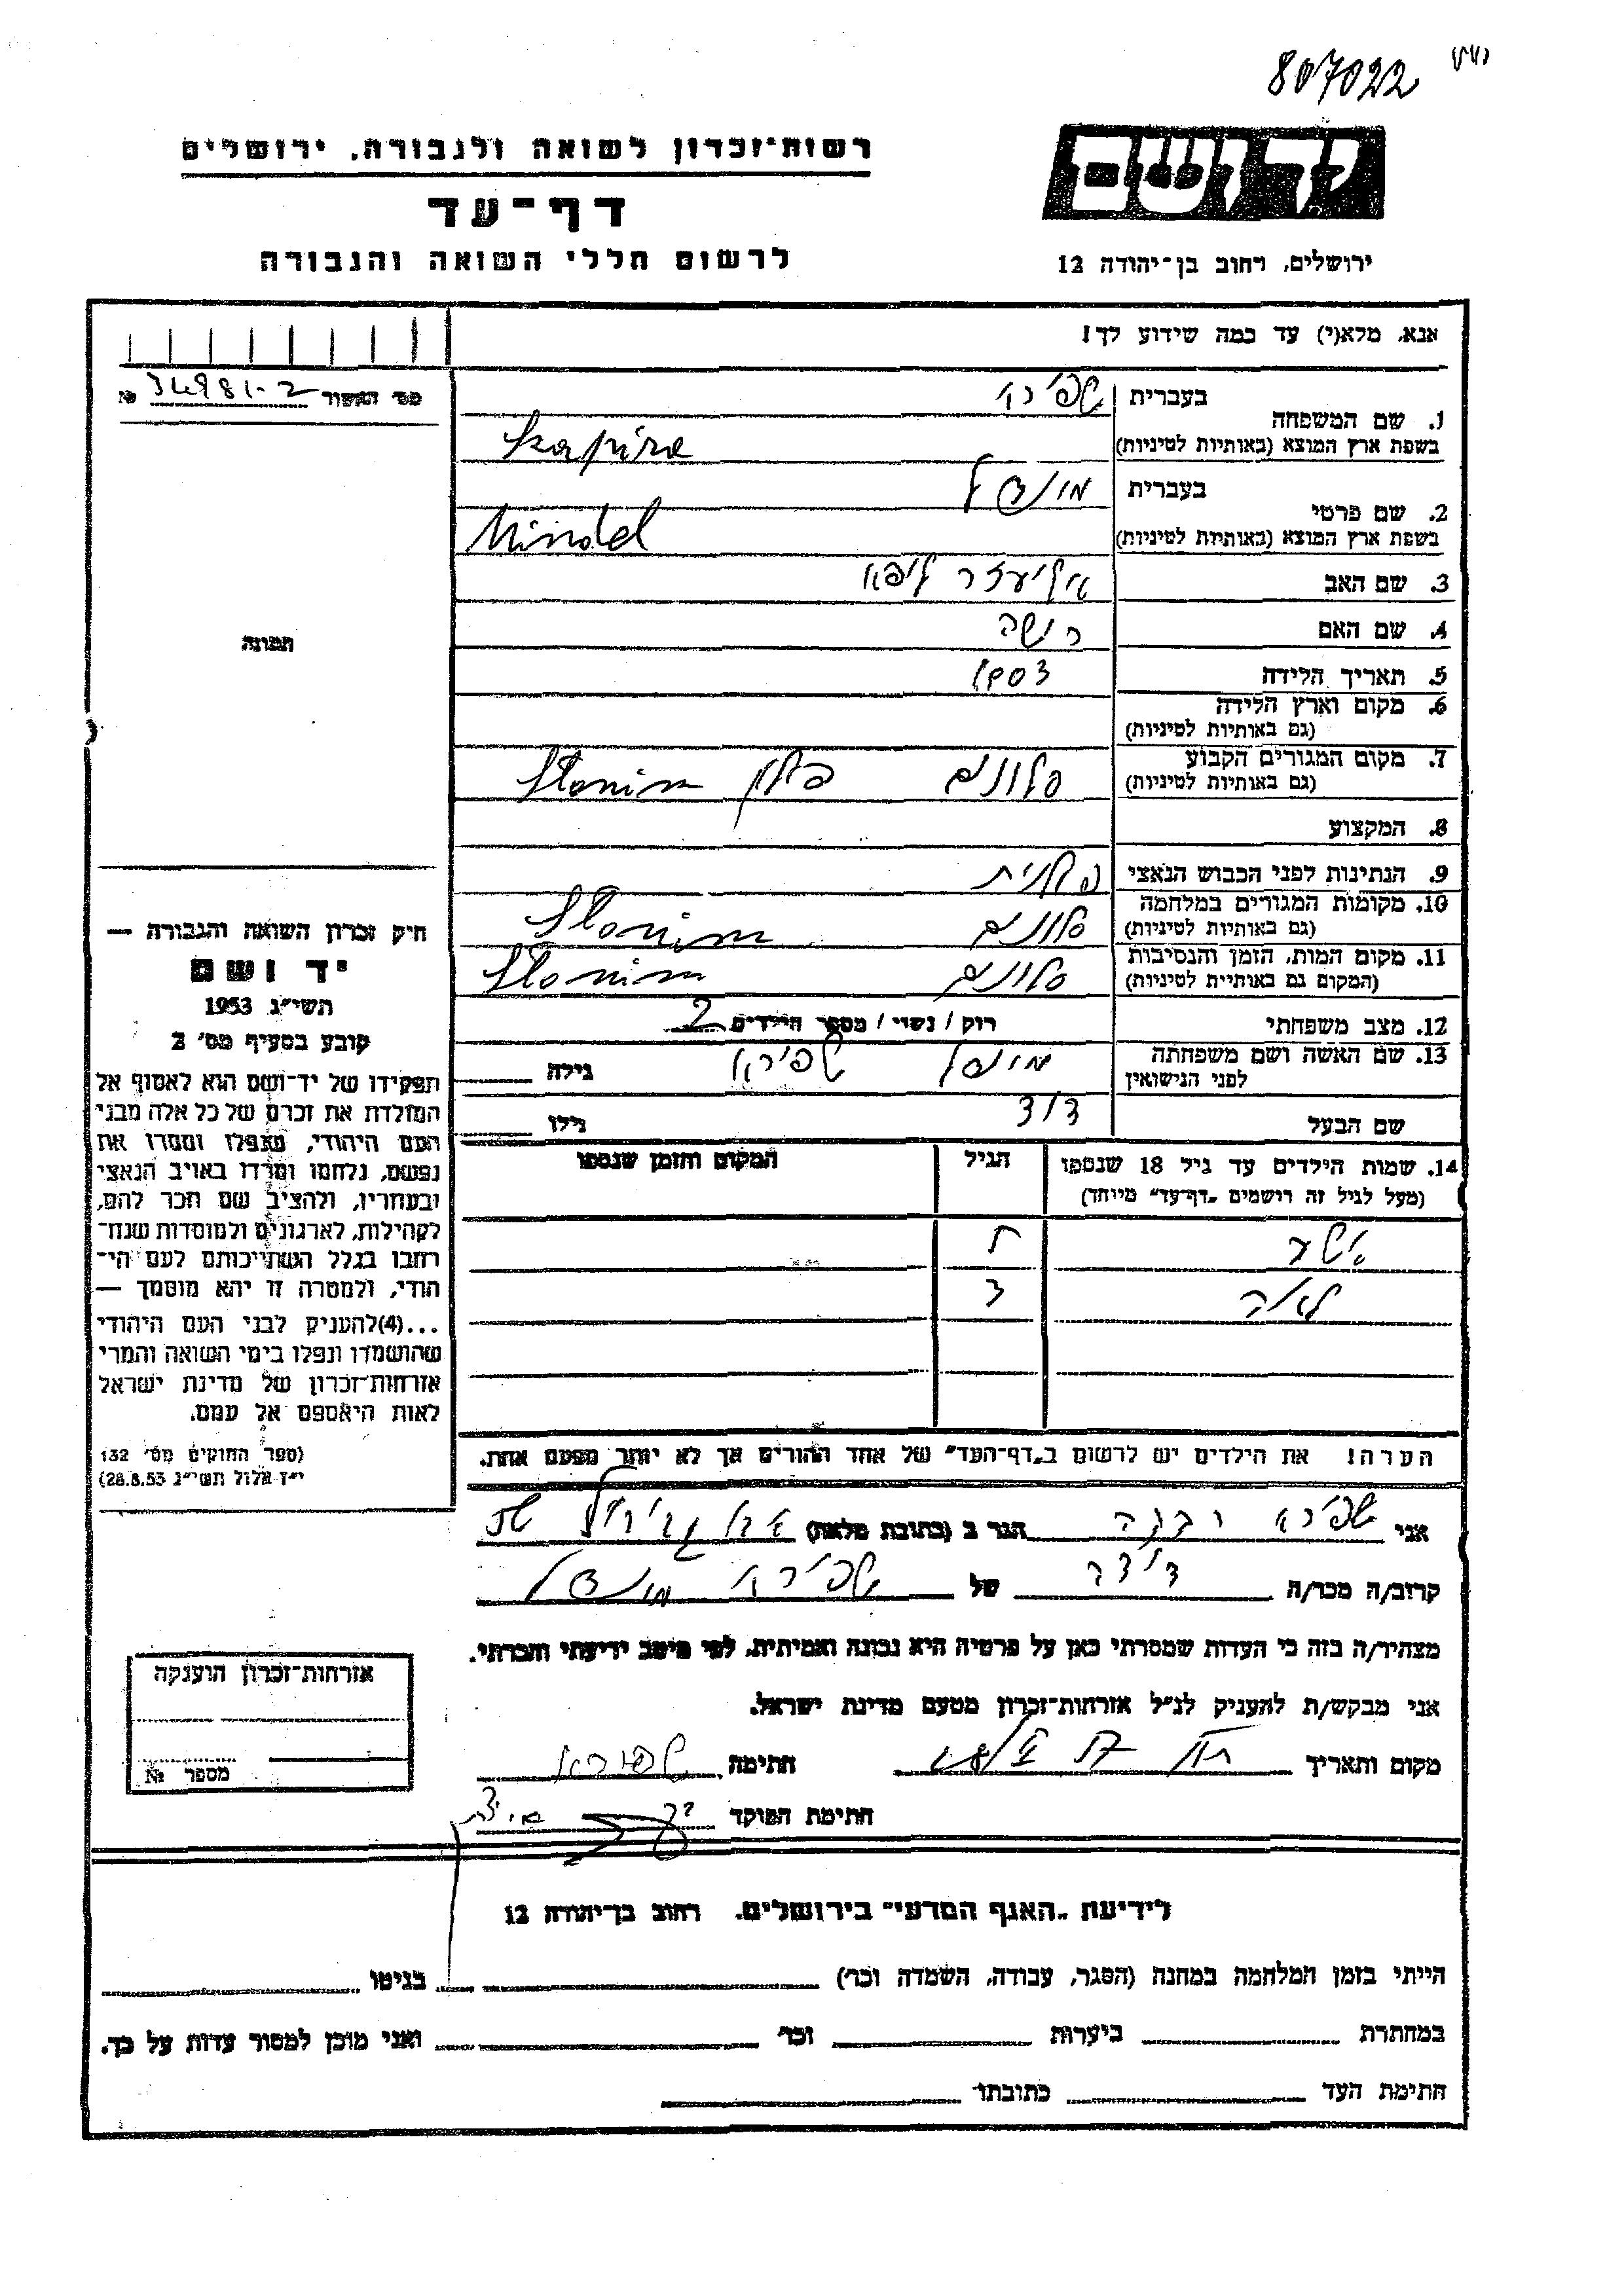 807022
רשות־זכרון לשואה ולגבורה, ירושלים
דף־עד
לרשום חללי השואה והגבורה
יד ושם
ירושלים, רחוב בן־יהודה 12
אנא, מלא(י) עד כמה שידוע לך!
מס׳ האשור 34981-2 №
תמונה
1. שם המשפחה
בעברית שפירא
בשפת ארץ המוצא (באותיות לטיניות) Szapira
2. שם פרטי
בעברית מינדל
בשפת ארץ המוצא (באותיות לטיניות) Mindel
3. שם האב אליעזר ליפא
4. שם האם
5. תאריך הלידה
6. מקום וארץ הלידה
(גם באותיות לטיניות)
7. מקום המגורים הקבוע סלונים פולין Slonim
(גם באותיות לטיניות)
8. המקצוע
9. הנתינות לפני הכבוש הנאצי פולנית
10. מקומות המגורים במלחמה סלונים Slonim
(גם באותיות לטיניות)
11. מקום המות, הזמן והנסיבות סלונים Slonim
(המקום גם באותיית לטיניות)
12. מצב משפחתי רוק / נשוי / מספר הילדים 2
13. שם האשה ושם משפחתה מינדל שפירא גילה
לפני הנישואין
שם הבעל דוד גילו
14. שמות הילדים עד גיל 18 שנספו הגיל המקום והזמן שנספו
(מעל לגיל זה רושמים „דף־עד״ מיוחד)
לאה
הערה! את הילדים יש לרשום ב„דף־העד״ של אחד ההורים אך לא יותר מפעם אחת.
אני שפירא רבקה הגר ב (כתובת מלאה)
קרוב/ה מכר/ה דודה של שפירא מינדל
מצהיר/ה בזה כי העדות שמסרתי כאן על פרטיה היא נכונה ואמיתית, לפי מיטב ידיעתי והכרתי.
אני מבקש/ת להעניק לנ״ל אזרחות־זכרון מטעם מדינת ישראל.
מקום ותאריך חתימה שפירא
חתימת הפוקד
חיק זכרון השואה והגבורה —
יד ושם
תשי״ג 1953
קובע בסעיף מס׳ 2
תפקידו של יד־ושם הוא לאסוף אל
המולדת את זכרם של כל אלה מבני
העם היהודי, שנפלו ומסרו את
נפשם, נלחמו ומרדו באויב הנאצי
ובעוזריו, ולהציב שם וזכר להם,
לקהילות, לארגונים ולמוסדות שנח־
רחבו בגלל השתייכותם לעם הי־
הודי, ולמטרה זו יהא מוסמך —
...(4)להעניק לבני העם היהודי
שהושמדו ונפלו בימי השואה והמרי
אזרחות־זכרון של מדינת ישראל
לאות היאספם אל עמם.
(ספר החוקים מס׳ 132
י״ז אלול תשי״ג 28.8.53)
אזרחות־זכרון הוענקה
מספר №
לידיעת „האגף המדעי״ בירושלים. רחוב בן־יהודה 12
הייתי בזמן המלחמה במחנה (הסגר, עבודה, השמדה וכו׳) בגיטו
במחתרת ביערות וכו׳ ואני מוכן למסור עדות על כך.
חתימת העד כתובתו